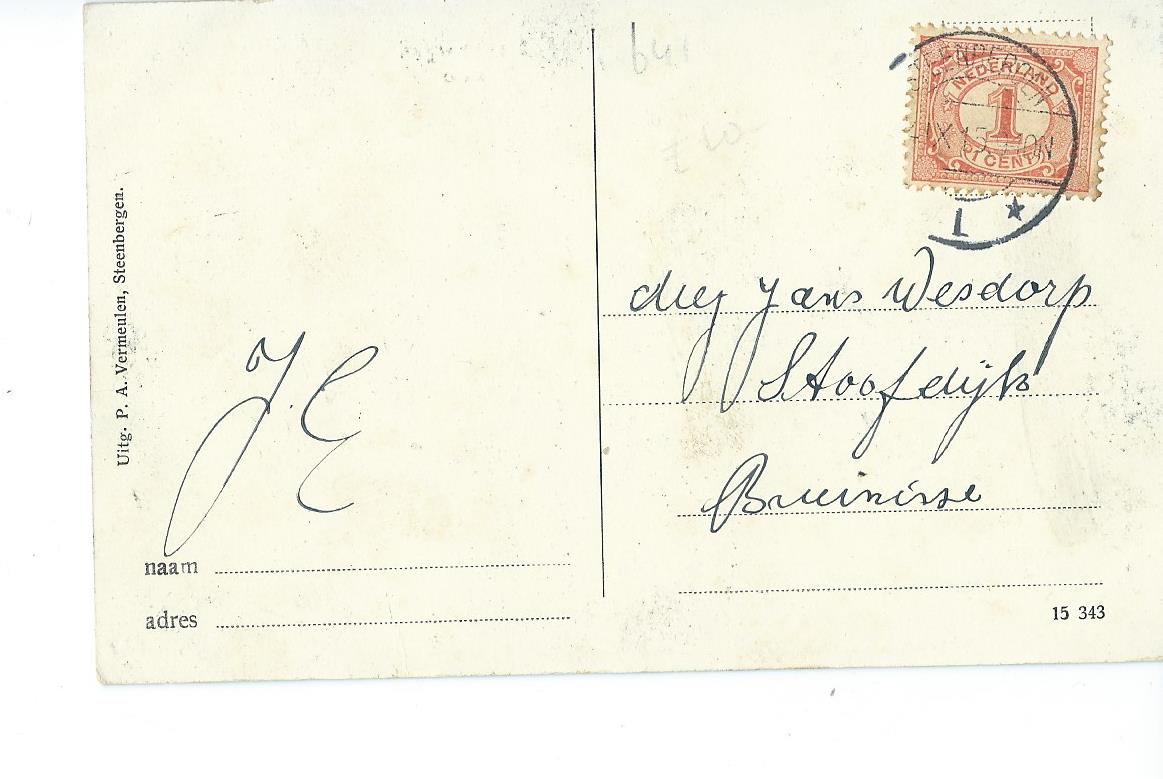 Uitg. P. A. Vermeulen, Steenbergen.
J. E
naam
adres
NEDERLAND
1
CENT
1
Jans Wesdorp
Stoofdijk
Bruinisse
15 343